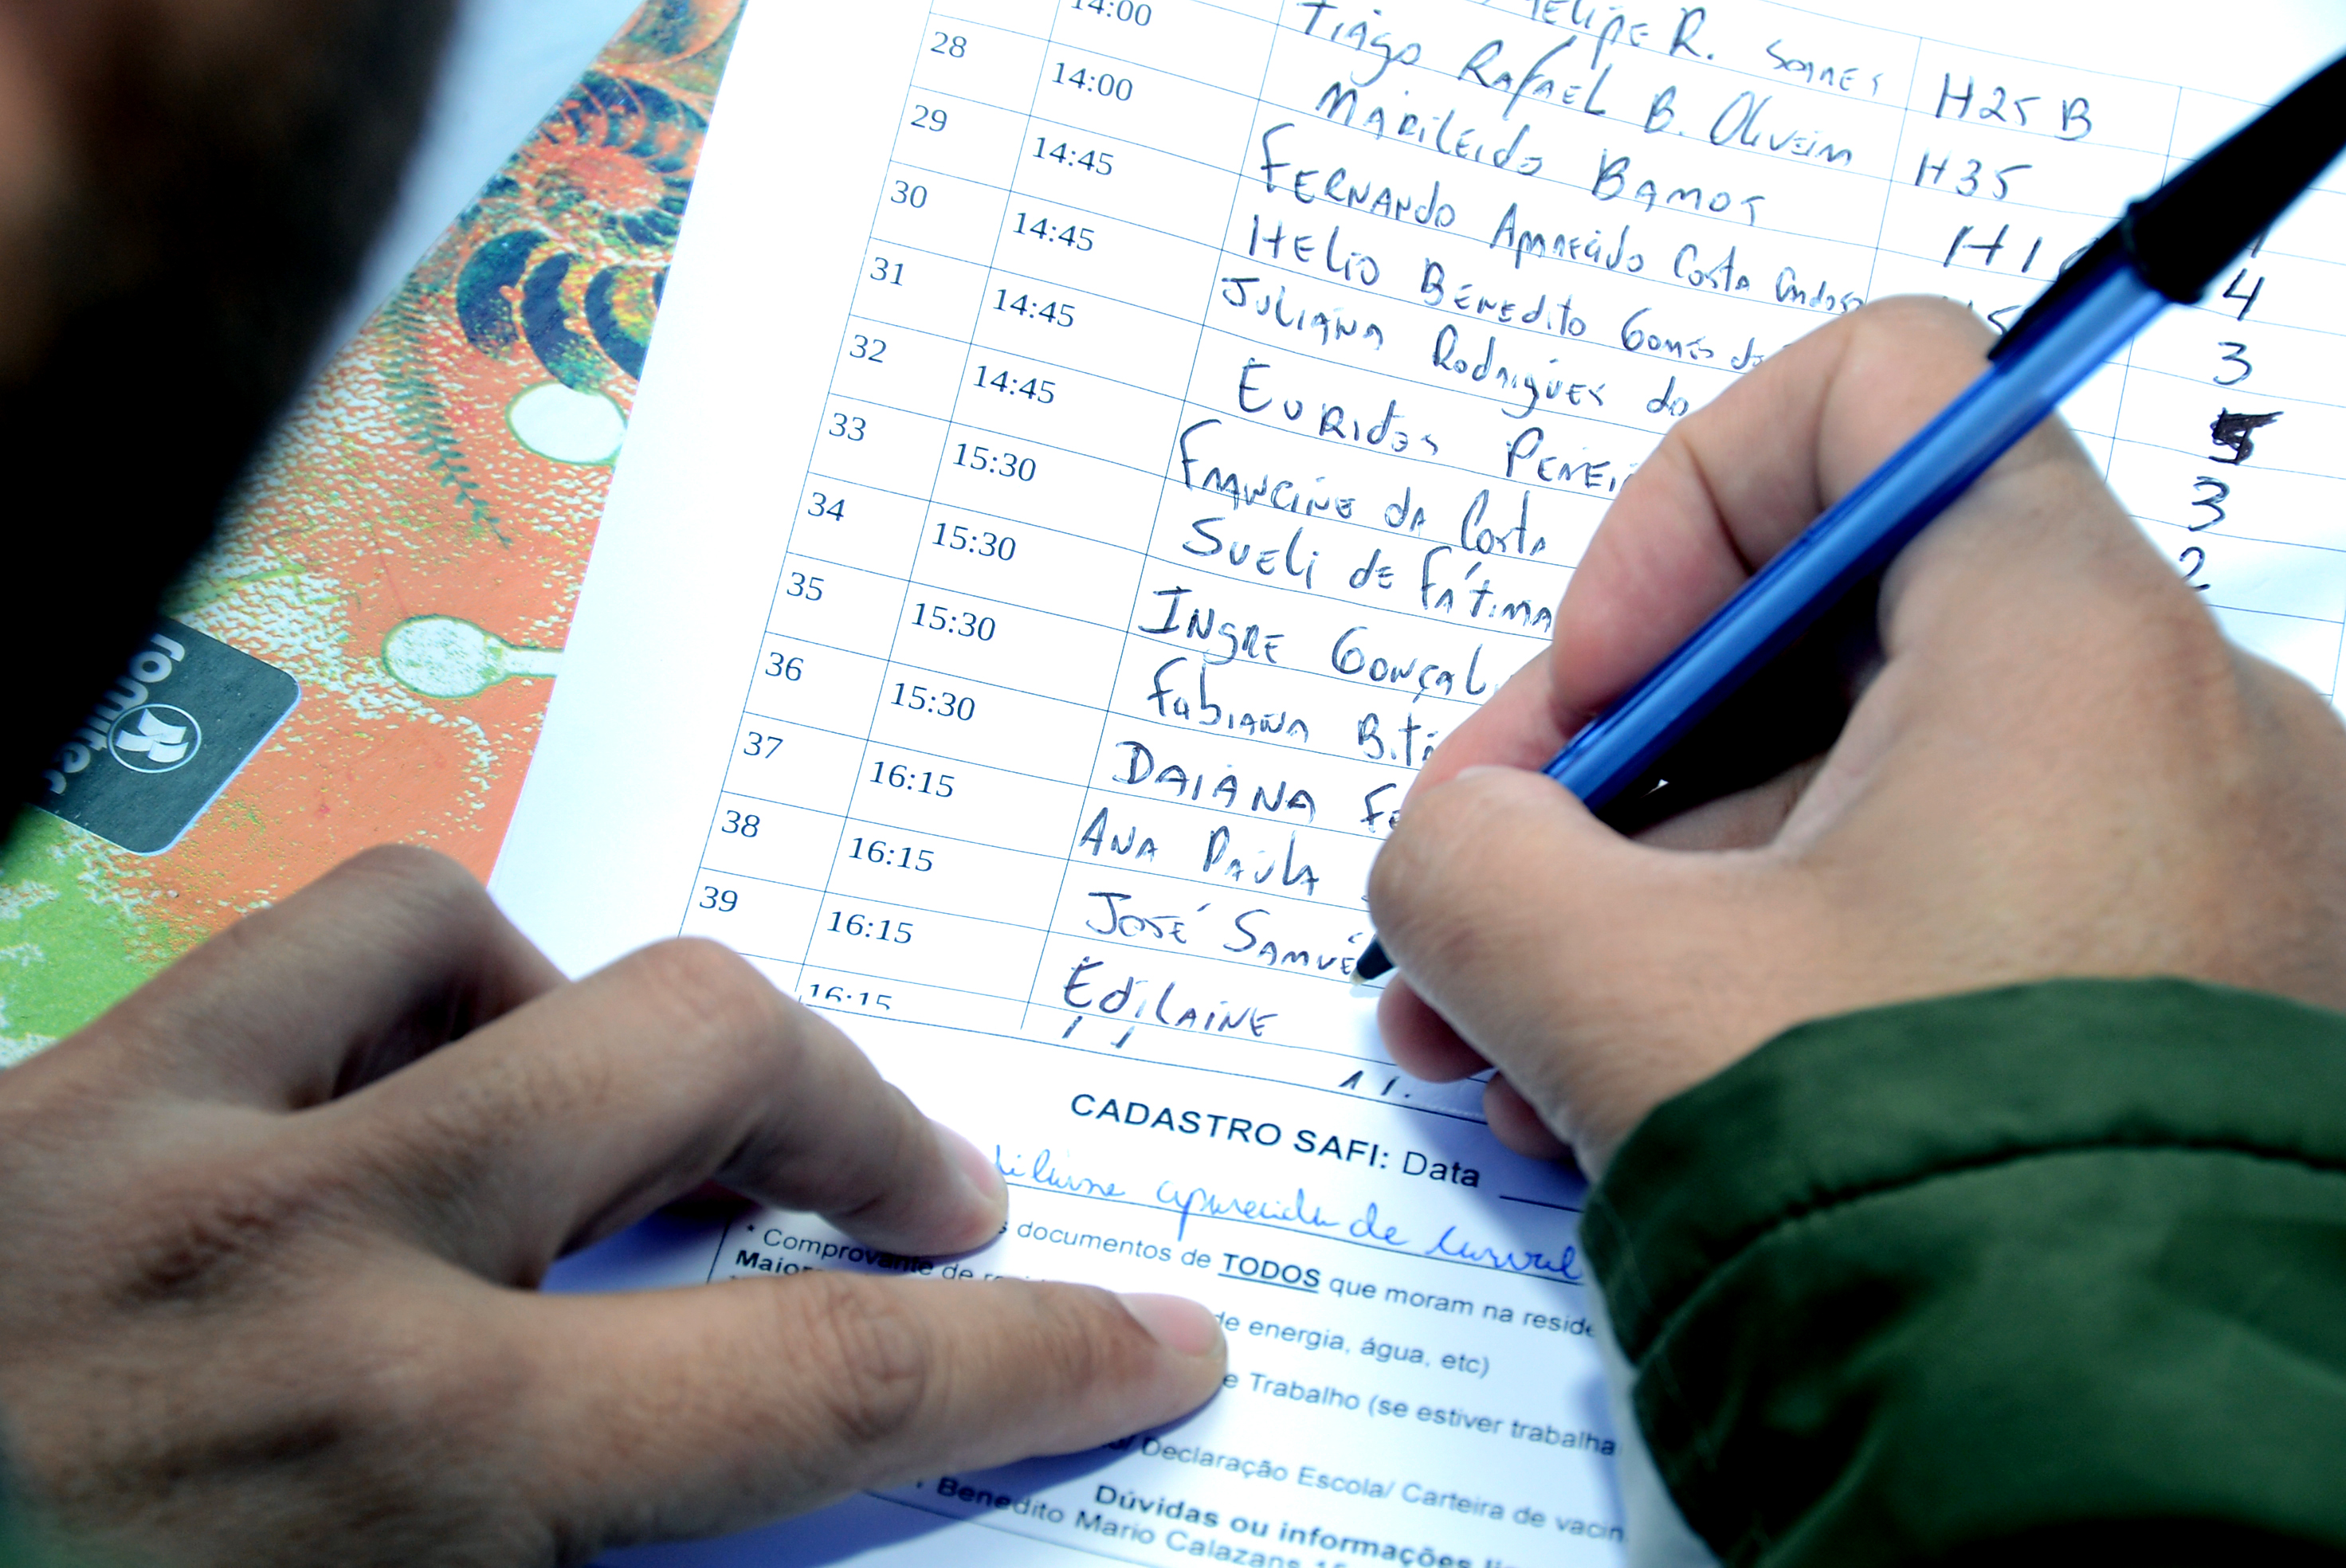 14:00 FELIPE R. SOARES H25 B
28 14:00 TIAGO RAFAEL B. OLIVEIRA H35
29 14:45 MARILEIDO RAMOS H1 4
30 14:45 FERNANDO APARECIDO COSTA 3
31 14:45 HELIO BENEDITO GOMES 5
32 14:45 JULIANA RODRIGUES do 3
33 15:30 EURIDES 2
34 15:30 FRANCINE dA COSTA
35 15:30 SUELI dE FÁTIMA
36 15:30 INGRE GONÇAL
37 16:15 FABIANA B.
38 16:15 DAIANA
39 16:15 ANA PAULA
16:15 JOSÉ SAMUE
EdILAINE
CADASTRO SAFI: Data
aparecida de
documentos de TODOS que moram na reside
* Comprovante de de energia, água, etc)
Maior
e Trabalho (se estiver trabalha
/ Declaração Escola/ Carteira de vacin
Dúvidas ou informações
Benedito Mario Calazans
romitec